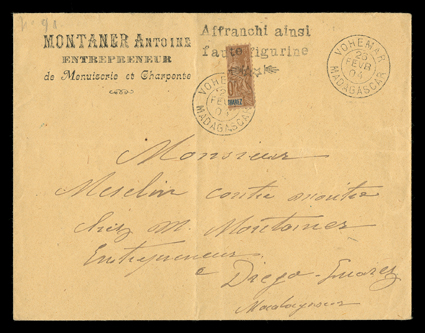 MONTANER ANTOINE
ENTREPRENEUR
de Menuiserie et Charpente
Affranchi ainsi
faute figurine
VOHEMAR
25
FEVR
04
MADAGASCAR
VOHEMAR
FEVR
MADAGASCAR
Monsieur
contre maitre
chez M. Montaner
Entrepreneur
a Diego-Suarez
Madagascar